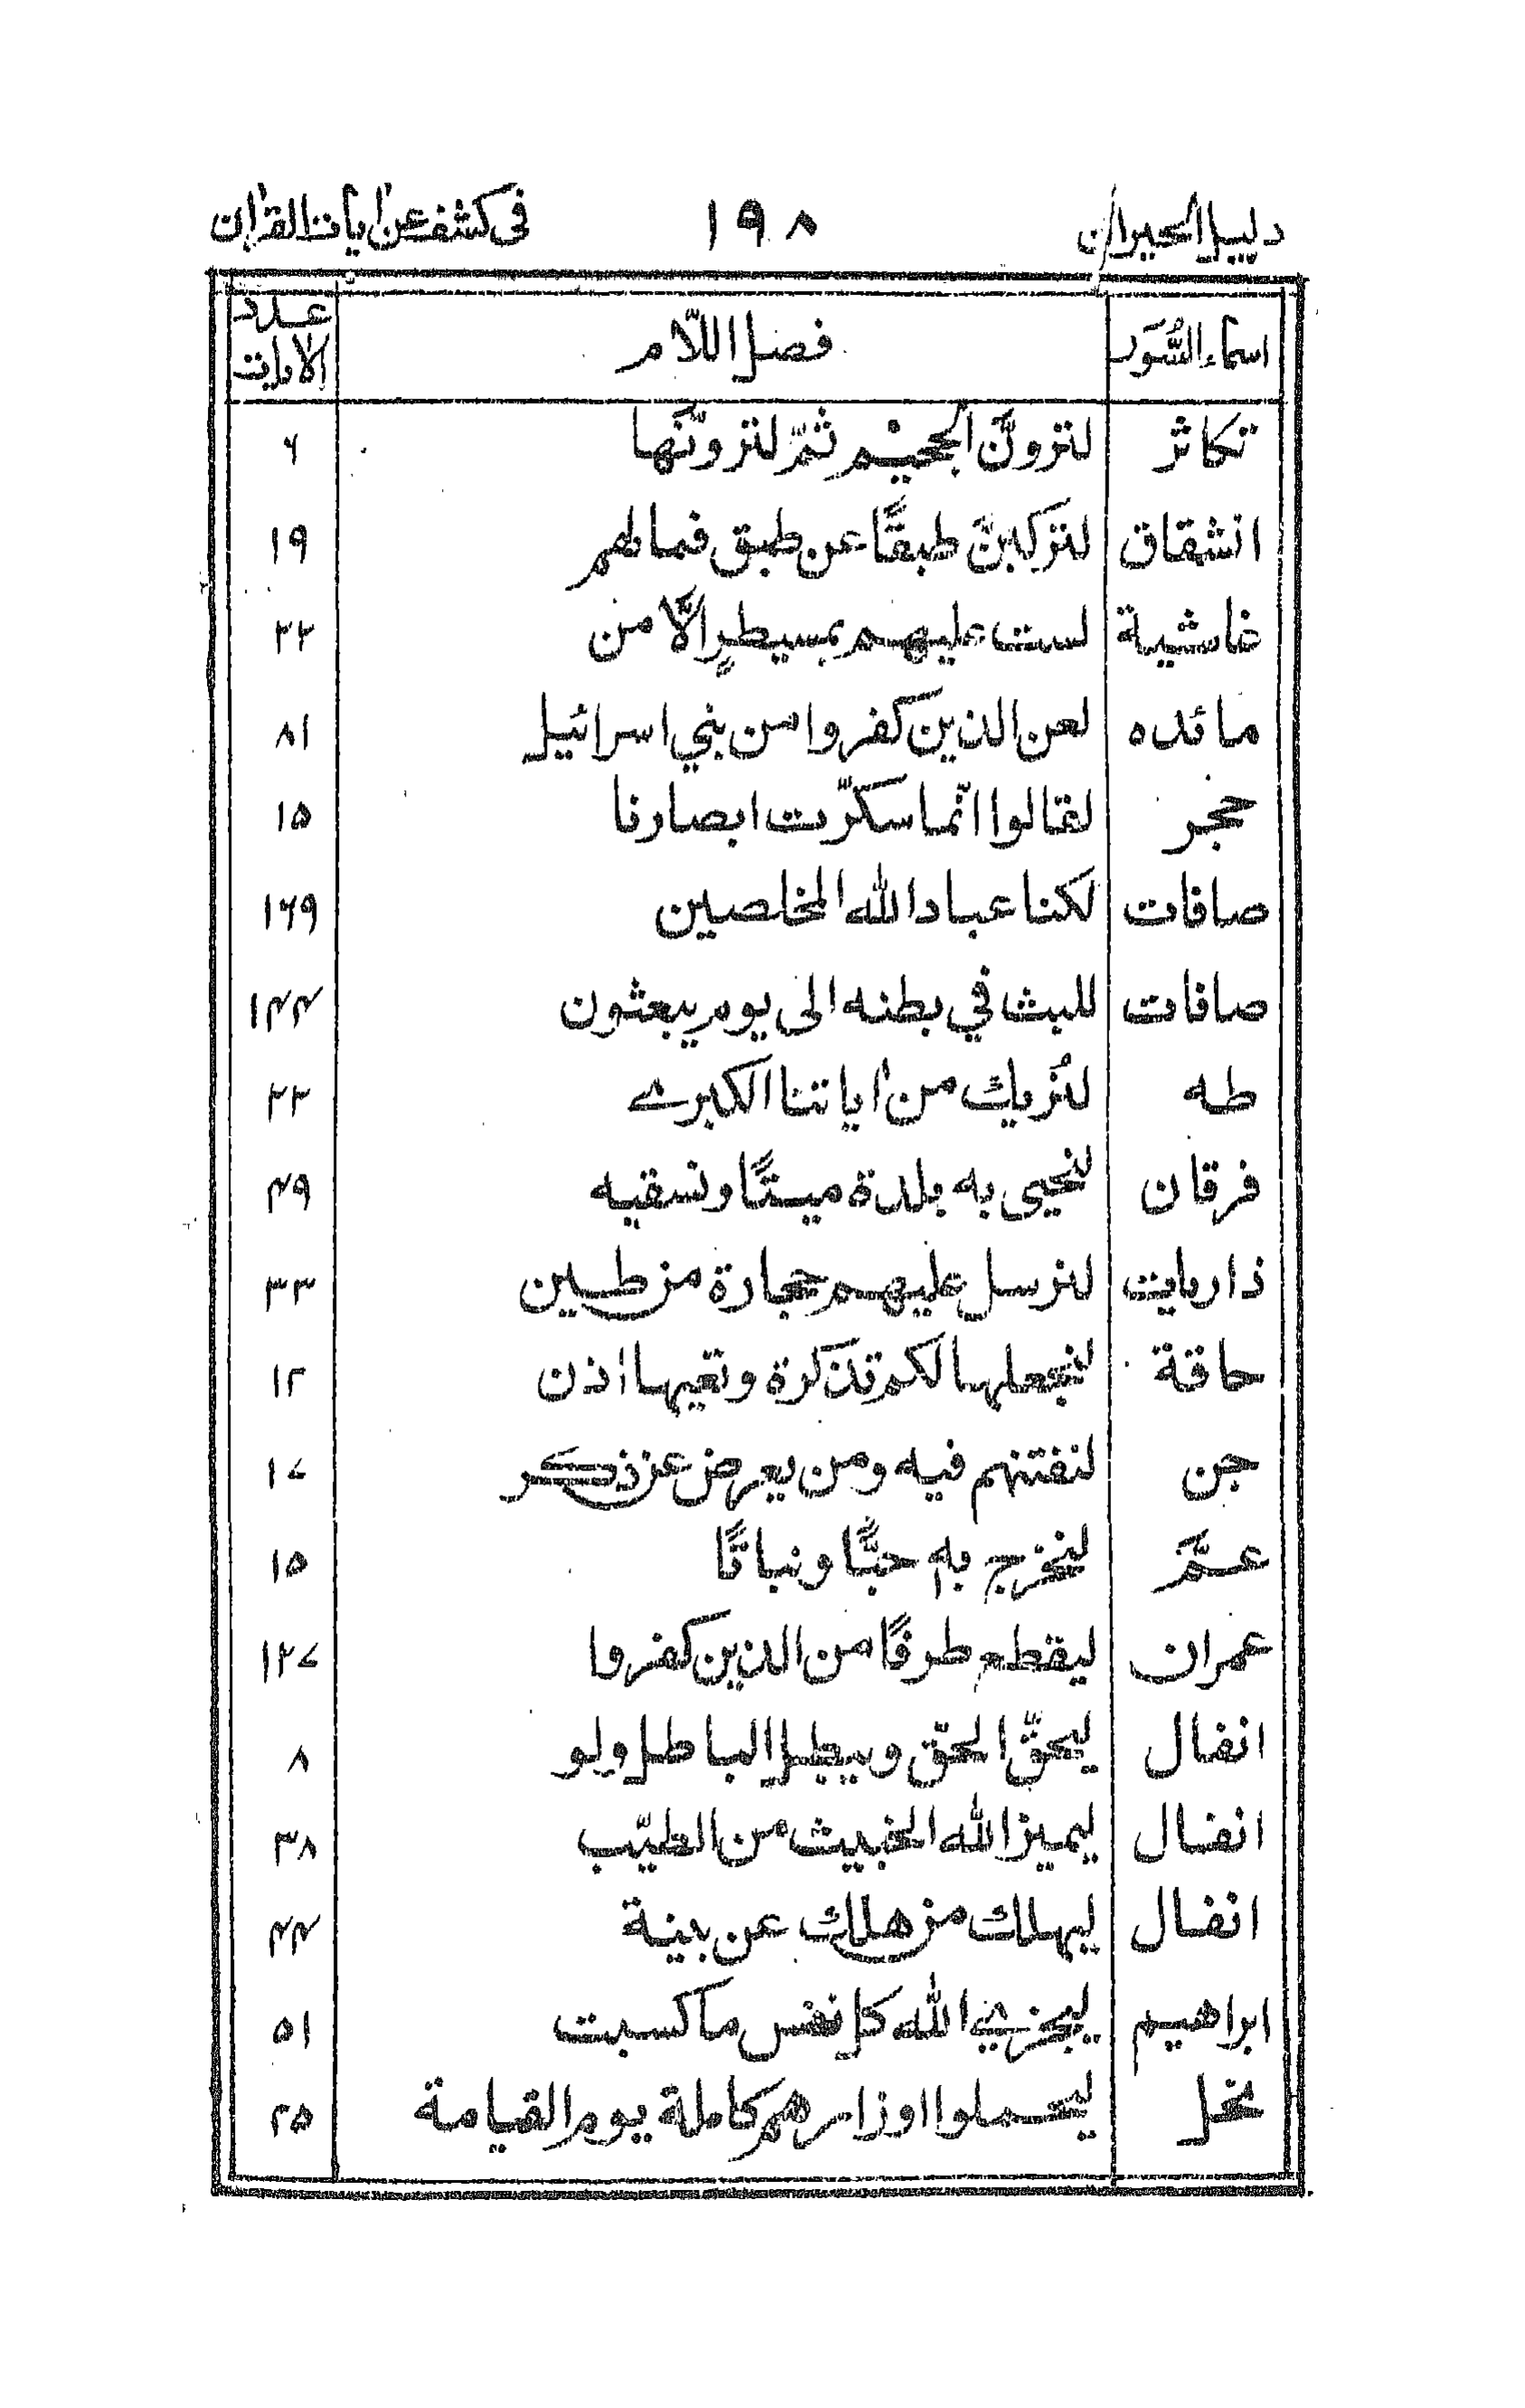 دليل الحيران ١٩٨ في كشف عن اٰيات القراٰن
اسماء السُّوَر فصل اللّام عدد الاٰيات
تكاثر لتروُنّ الجحيْم ثمّ لتروُنّها ۶
انشقاق لتركبنّ طبقًا عن طبق فما لهم ١٩
غاشية لست عليهم بمسيطرٍ الّا من ٢٢
مائده لعن الذين كفروا من بني اسرائيل ٨١
حجر لقالوا انّما سكرّت ابصارنا ١٥
صافات لكنا عباد الله المخلصين ١۶٩
صافات للبث في بطنه الى يوم يبعثون ١۴۴
طه لنُريك من اٰياتنا الكبرے ٢٢
فرقان لنحيى به بلدة ميتًا ونسقيه ۴٩
ذاريات لنرسل عليهم حجارة من طين ٣٣
حاقة لنجعلها لكم تذكرة وتعيها اذن ١٢
جن لنفتنهم فيه ومن يعرض عن ذكر ١٧
عمَّ لنخرج بهٖ حبًّا ونباتًا ١٥
عمران ليقطع طرفًا من الذين كفروا ١٢٧
انفال ليحقّ الحقّ ويبطل الباطل ولو ٨
انفال ليميز الله الخبيث من الطيّب ٣٨
انفال ليهلك من هلك عن بينة ۴۴
ابراهيم ليجزے الله كل نفس ما كسبت ٥١
نحل ليحملوا اوزارهم كاملة يوم القيامة ٢٥